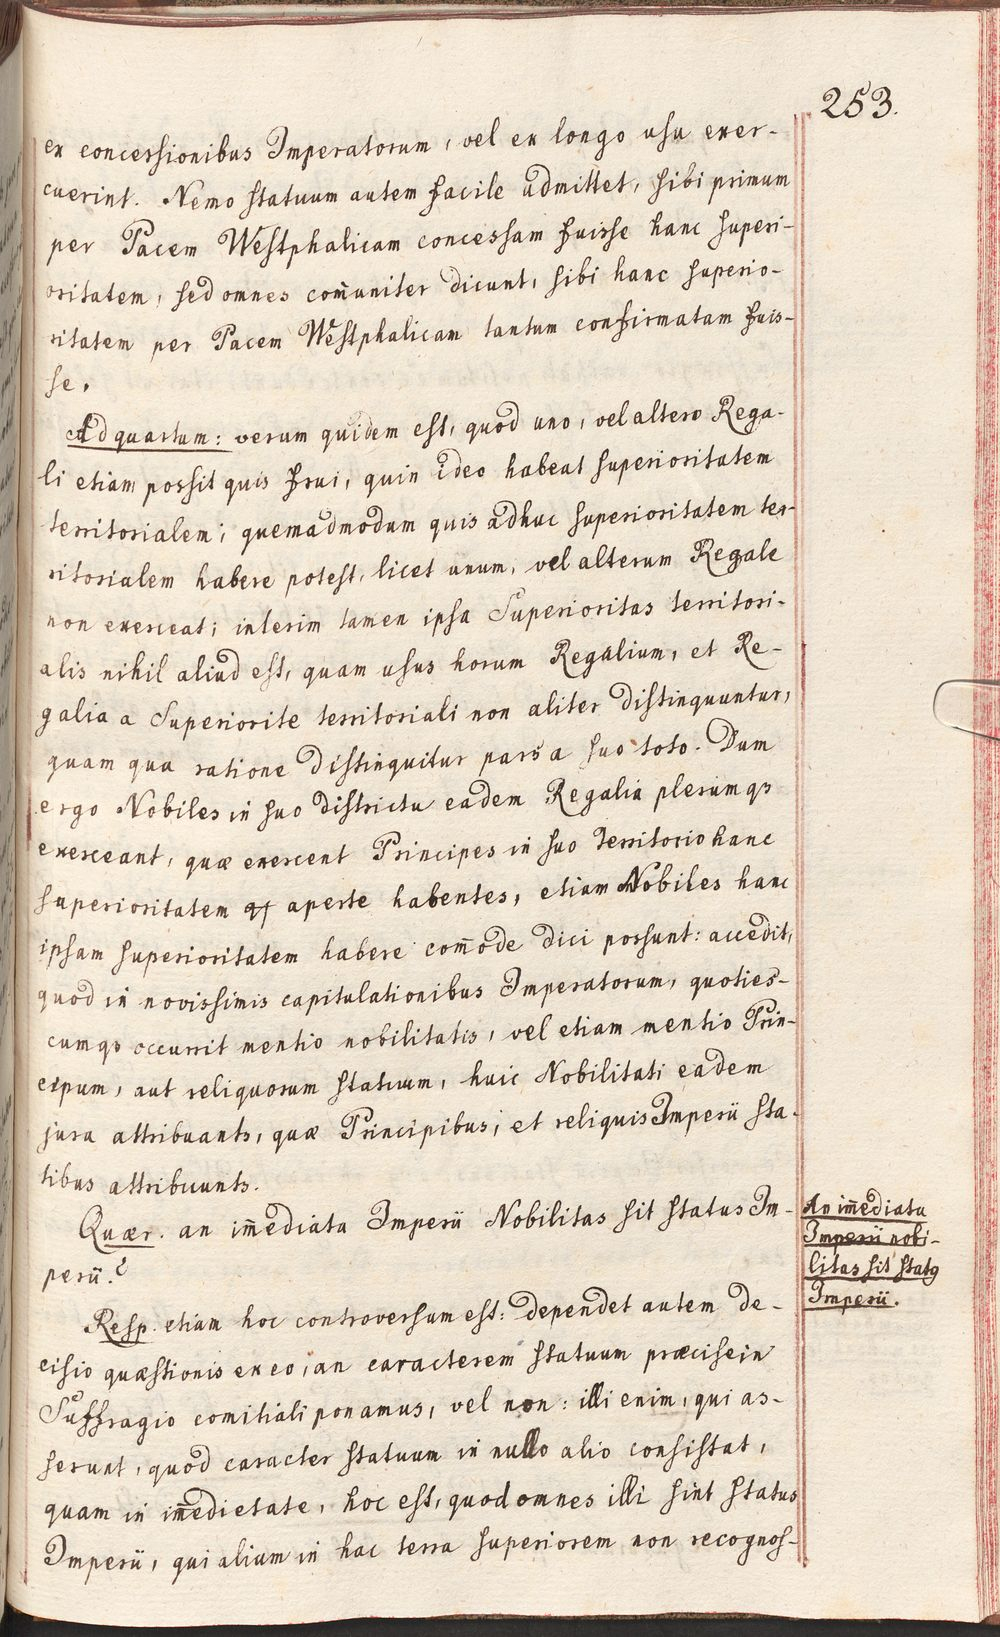 253.
ex concessionibus Imperatorum, vel ex longo usu exer-
cuerint. Nemo statuum autem facile admittet, sibi primum
per Pacem Westphalicam concessam fuisse hanc superi-
oritatem, sed omnes com̄uniter dicunt, sibi hanc superio-
ritatem per Pacem Westphalicam tantum confirmatam fuis-
se.
Ad quartum: verum quidem est, quod uno, vel altero Rega-
li etiam possit quis frui, quin ideo habeat superioritatem
territorialem; quemadmodum quis adhuc superioritatem ter-
ritorialem habere potest, licet unum, vel alterum Regale
non exerceat; interim tamen ipsa Superioritas territori-
alis nihil aliud est, quam usus horum Regalium, et Re-
galia a Superiorite territoriali non aliter distinquuntur,
quam qua ratione distinquitur pars a suo toto. Dum
ergo Nobiles in suo districtu eadem Regalia plerumqз
exerceant, quæ exercent Principes in suo territorio hanc
superioritatem aperte habentes, etiam Nobiles hanc
ipsam superioritatem habere com̄ode dici possunt: accedit,
quod in novissimis capitulationibus Imperatorum, quoties-
cumqз occurrit mentio nobilitatis, vel etiam mentio Prin-
cipum, aut reliquorum statuum, huic Nobilitati eadem
jura attribuants, quæ Principibus, et reliquis Imperii sta-
tibus attribuunts.
Quær. an im̄ediata Imperii Nobilitas sit status Im-
perii.?
Resp. etiam hoc controversum est: dependet autem de-
cisio quæstionis ex eo, an caracterem statuum præcise in
Suffragio comitiali ponamus, vel non: illi enim, qui as-
serunt, quod caracter statuum in nullo alio consistat,
quam in im̄edietate, hoc est, quod omnes illi sint status
Imperii, qui alium in hac terra superiorem non recognos-
An im̄ediata
Imperii nobi-
litas sit statꝯ
Imperii.